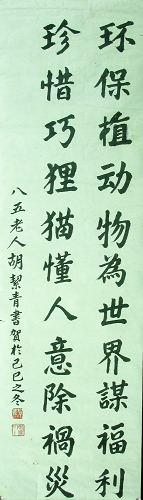 环保植动物為世界謀福利
珍惜巧狸猫懂人意除禍災
八五老人胡絜青書賀於己巳之冬